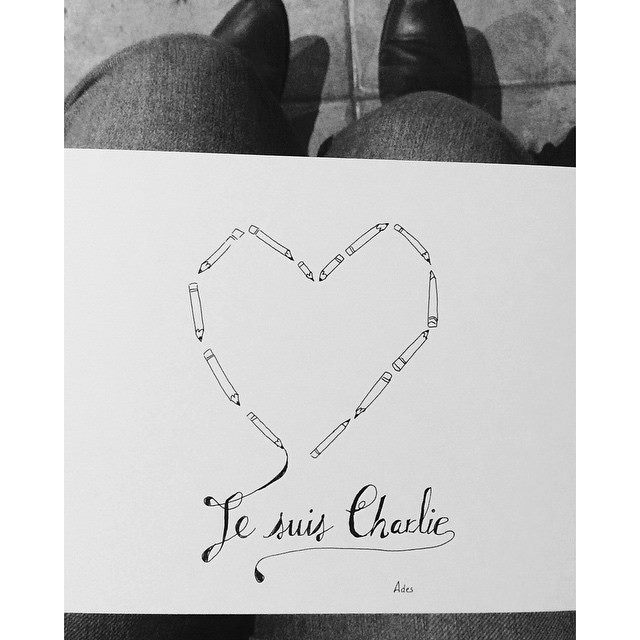 Je suis Charlie
Ades